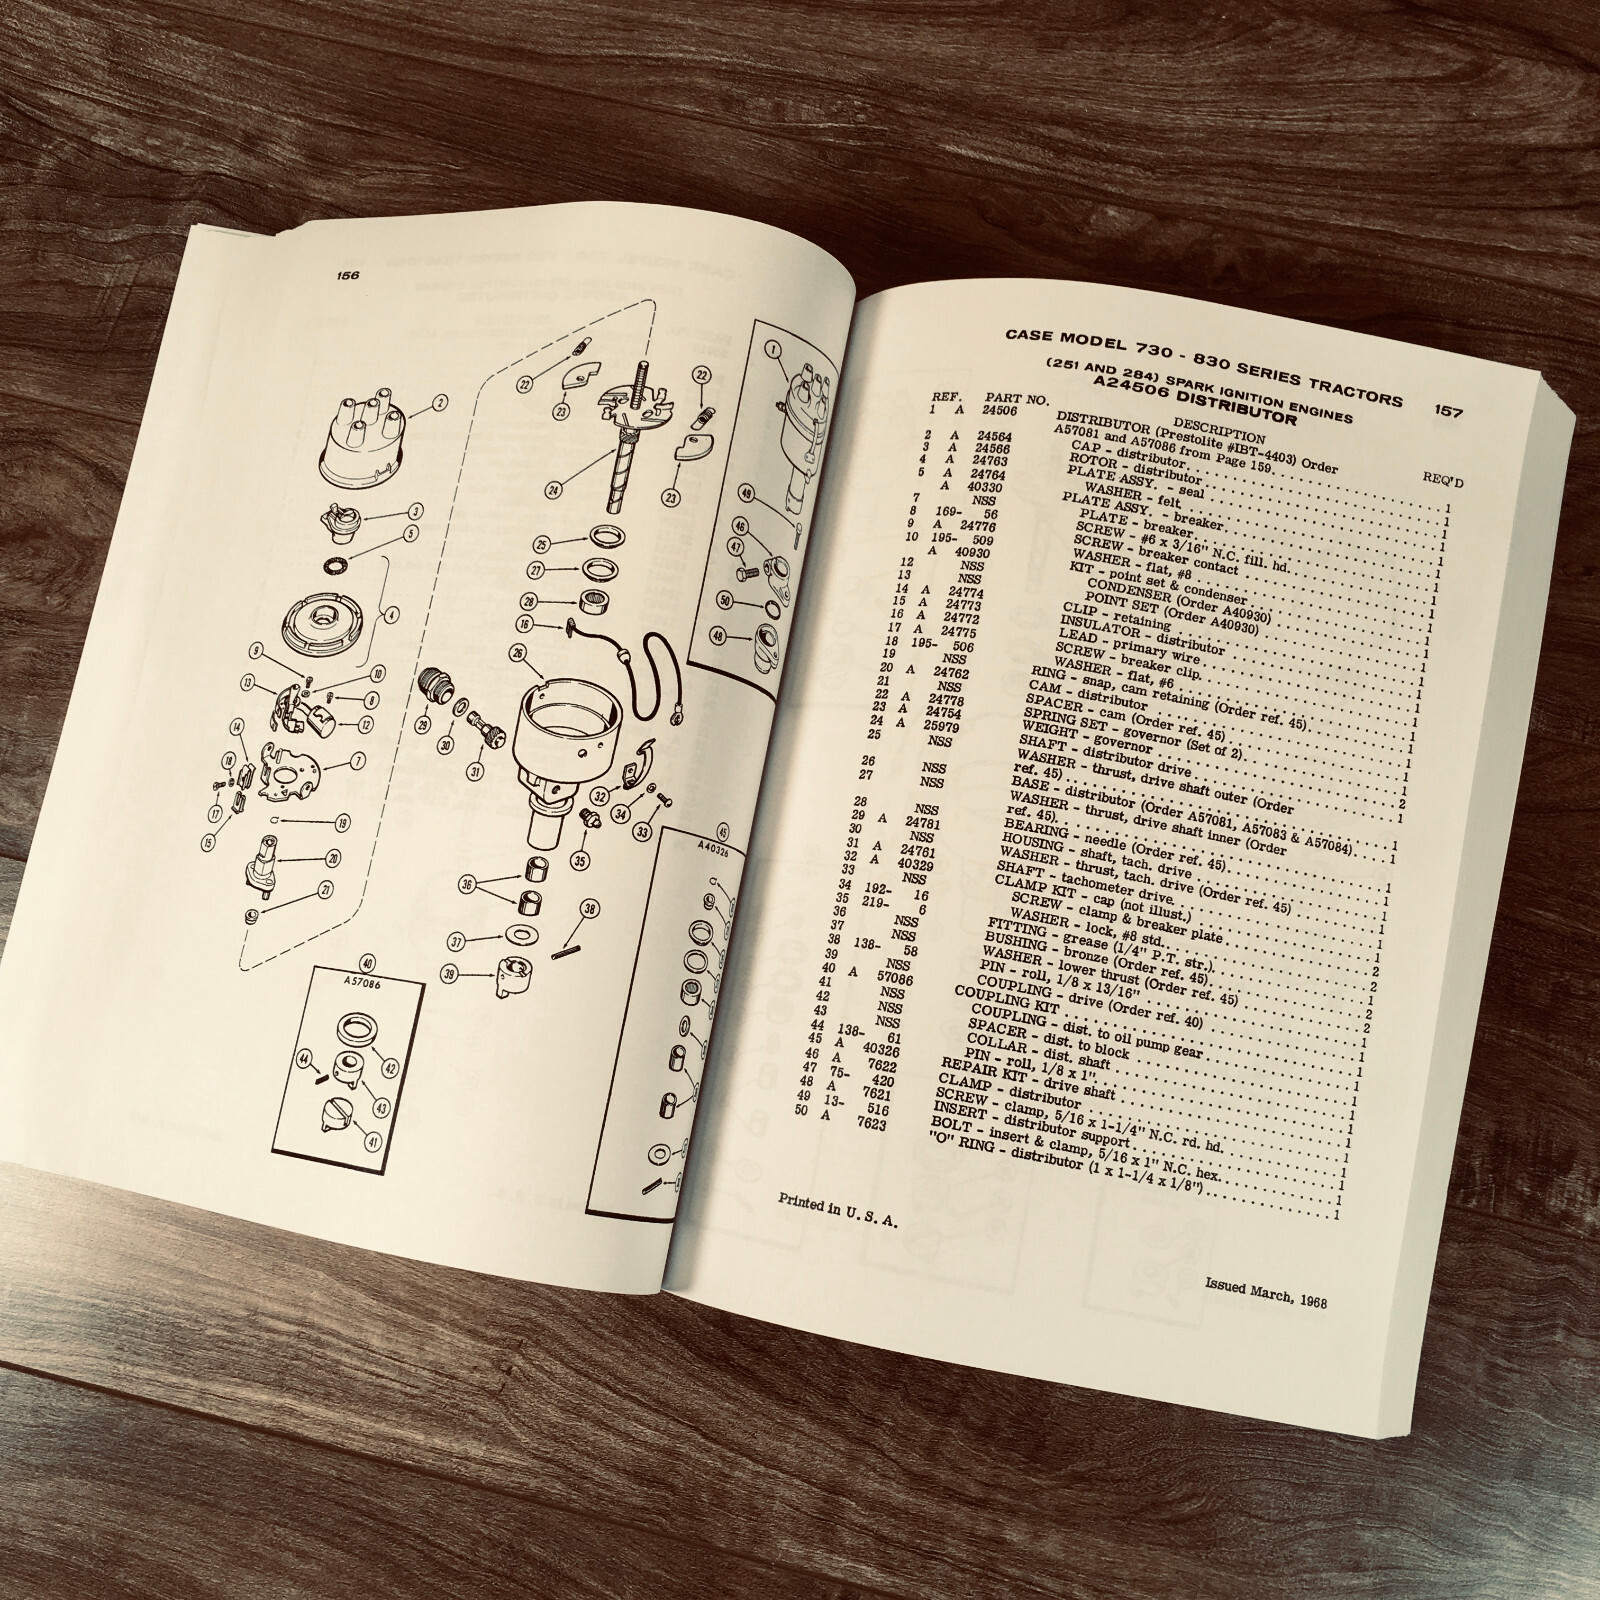 156
1
2
22
23
22
23
24
3
5
4
25
27
28
16
26
49
46
47
50
48
9
10
13
8
12
14
18
7
17
15
19
20
21
29
30
31
32
34
33
35
36
37
38
39
40
A57086
44
42
43
41
45
A40326
CASE MODEL 730 - 830 SERIES TRACTORS 157
(251 AND 284) SPARK IGNITION ENGINES
A24506 DISTRIBUTOR
REF. PART NO. DESCRIPTION REQ'D
1 A 24506 DISTRIBUTOR (Prestolite #IBT-4403) Order
A57081 and A57086 from Page 159. 1
2 A 24564 CAP - distributor 1
3 A 24566 ROTOR - distributor 1
4 A 24763 PLATE ASSY. - seal 1
5 A 24764 WASHER - felt 1
A 40330 PLATE ASSY. - breaker 1
7 NSS PLATE - breaker 1
8 169- 56 SCREW - #6 x 3/16" N.C. fill. hd. 1
9 A 24776 SCREW - breaker contact 1
10 195- 509 WASHER - flat, #8 1
A 40930 KIT - point set & condenser 1
12 NSS CONDENSER (Order A40930) 1
13 NSS POINT SET (Order A40930) 1
14 A 24774 CLIP - retaining 1
15 A 24773 INSULATOR - distributor 1
16 A 24772 LEAD - primary wire 1
17 A 24775 SCREW - breaker clip 1
18 195- 506 WASHER - flat, #6 1
19 NSS RING - snap, cam retaining (Order ref. 45) 1
20 A 24762 CAM - distributor 1
21 NSS SPACER - cam (Order ref. 45) 1
22 A 24778 SPRING SET - governor (Set of 2) 1
23 A 24754 WEIGHT - governor 2
24 A 25979 SHAFT - distributor drive 1
25 NSS WASHER - thrust, drive shaft outer (Order
ref. 45) 1
26 NSS BASE - distributor (Order A57081, A57083 & A57084) 1
27 NSS WASHER - thrust, drive shaft inner (Order
ref. 45) 1
28 NSS BEARING - needle (Order ref. 45) 1
29 A 24781 HOUSING - shaft, tach. drive 1
30 NSS WASHER - thrust, tach. drive (Order ref. 45) 1
31 A 24761 SHAFT - tachometer drive 1
32 A 40329 CLAMP KIT - cap (not illust.) 1
33 NSS SCREW - clamp & breaker plate 2
34 192- 16 WASHER - lock, #8 std. 2
35 219- 6 FITTING - grease (1/4" P.T. str.) 1
36 NSS BUSHING - bronze (Order ref. 45) 2
37 NSS WASHER - lower thrust (Order ref. 45) 2
38 138- 58 PIN - roll, 1/8 x 13/16" 1
39 NSS COUPLING - drive (Order ref. 40) 1
40 A 57086 COUPLING KIT 1
41 NSS COUPLING - dist. to oil pump gear 1
42 NSS SPACER - dist. to block 1
43 NSS COLLAR - dist. shaft 1
44 138- 61 PIN - roll, 1/8 x 1" 1
45 A 40326 REPAIR KIT - drive shaft 1
46 A 7622 CLAMP - distributor 1
47 75- 420 SCREW - clamp, 5/16 x 1-1/4" N.C. rd. hd. 1
48 A 7621 INSERT - distributor support 1
49 13- 516 BOLT - insert & clamp, 5/16 x 1" N.C. hex. 1
50 A 7623 "O" RING - distributor (1 x 1-1/4 x 1/8") 1
Printed in U. S. A.
Issued March, 1968